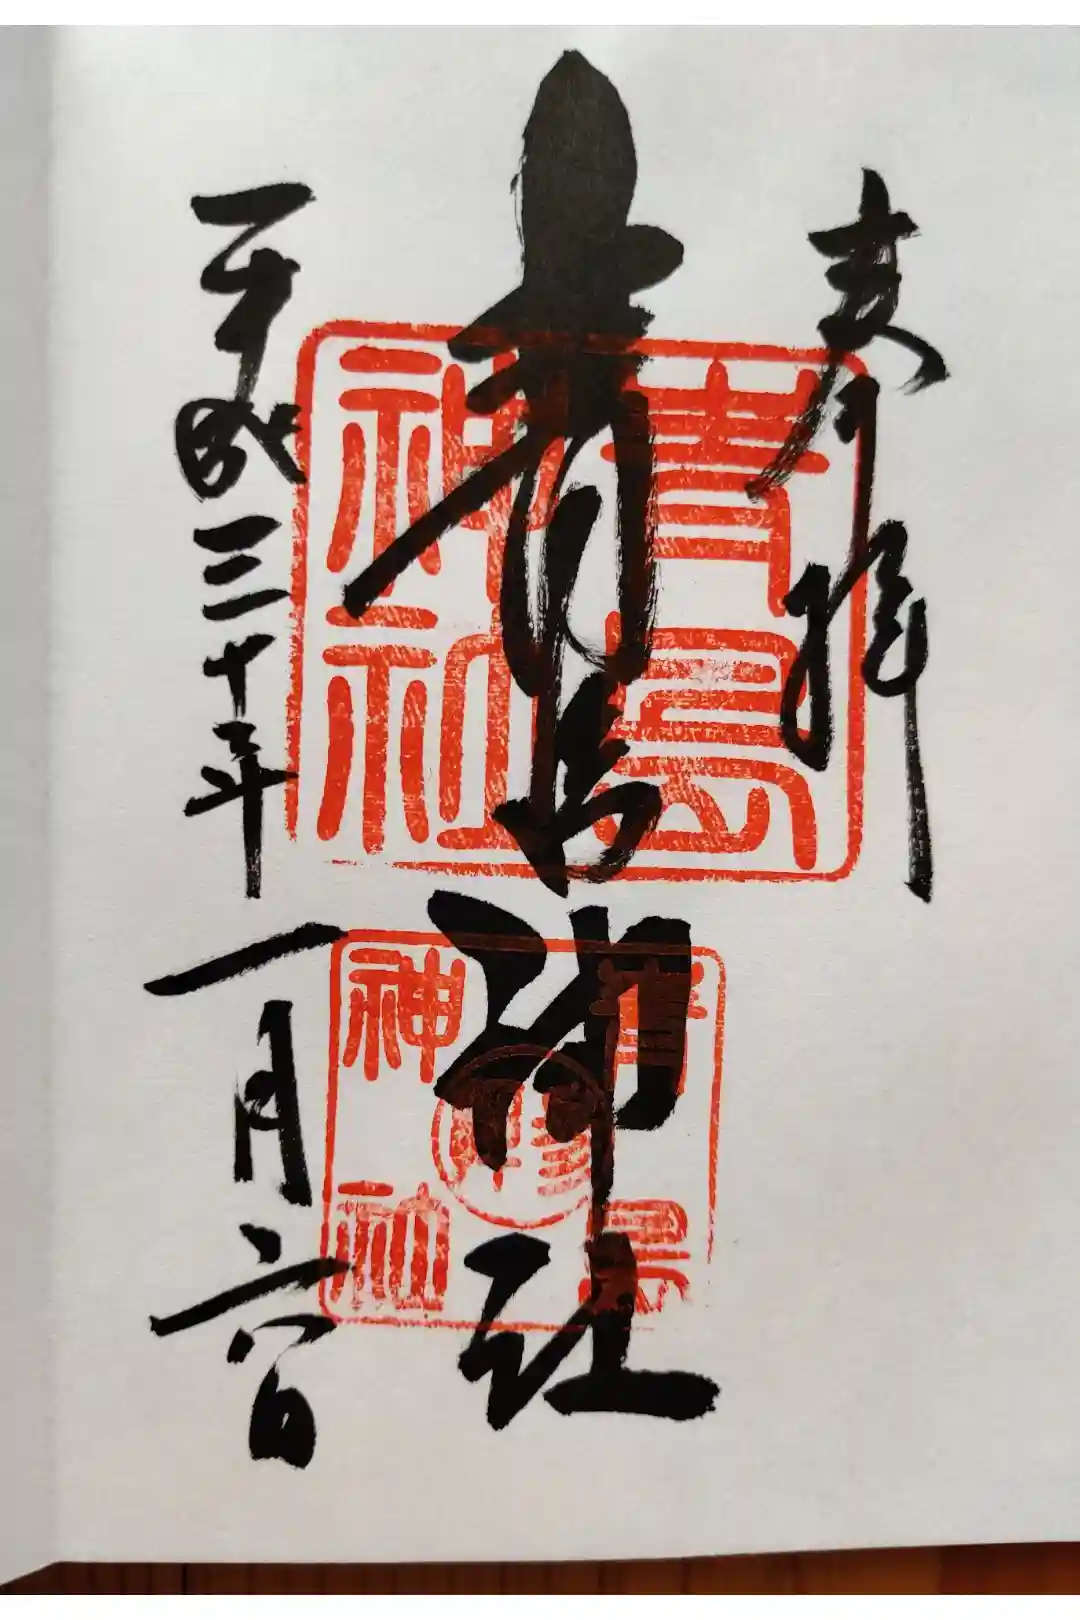 奉拝
青島神社
平成三十年一月六日
青島
神社
青島
神社